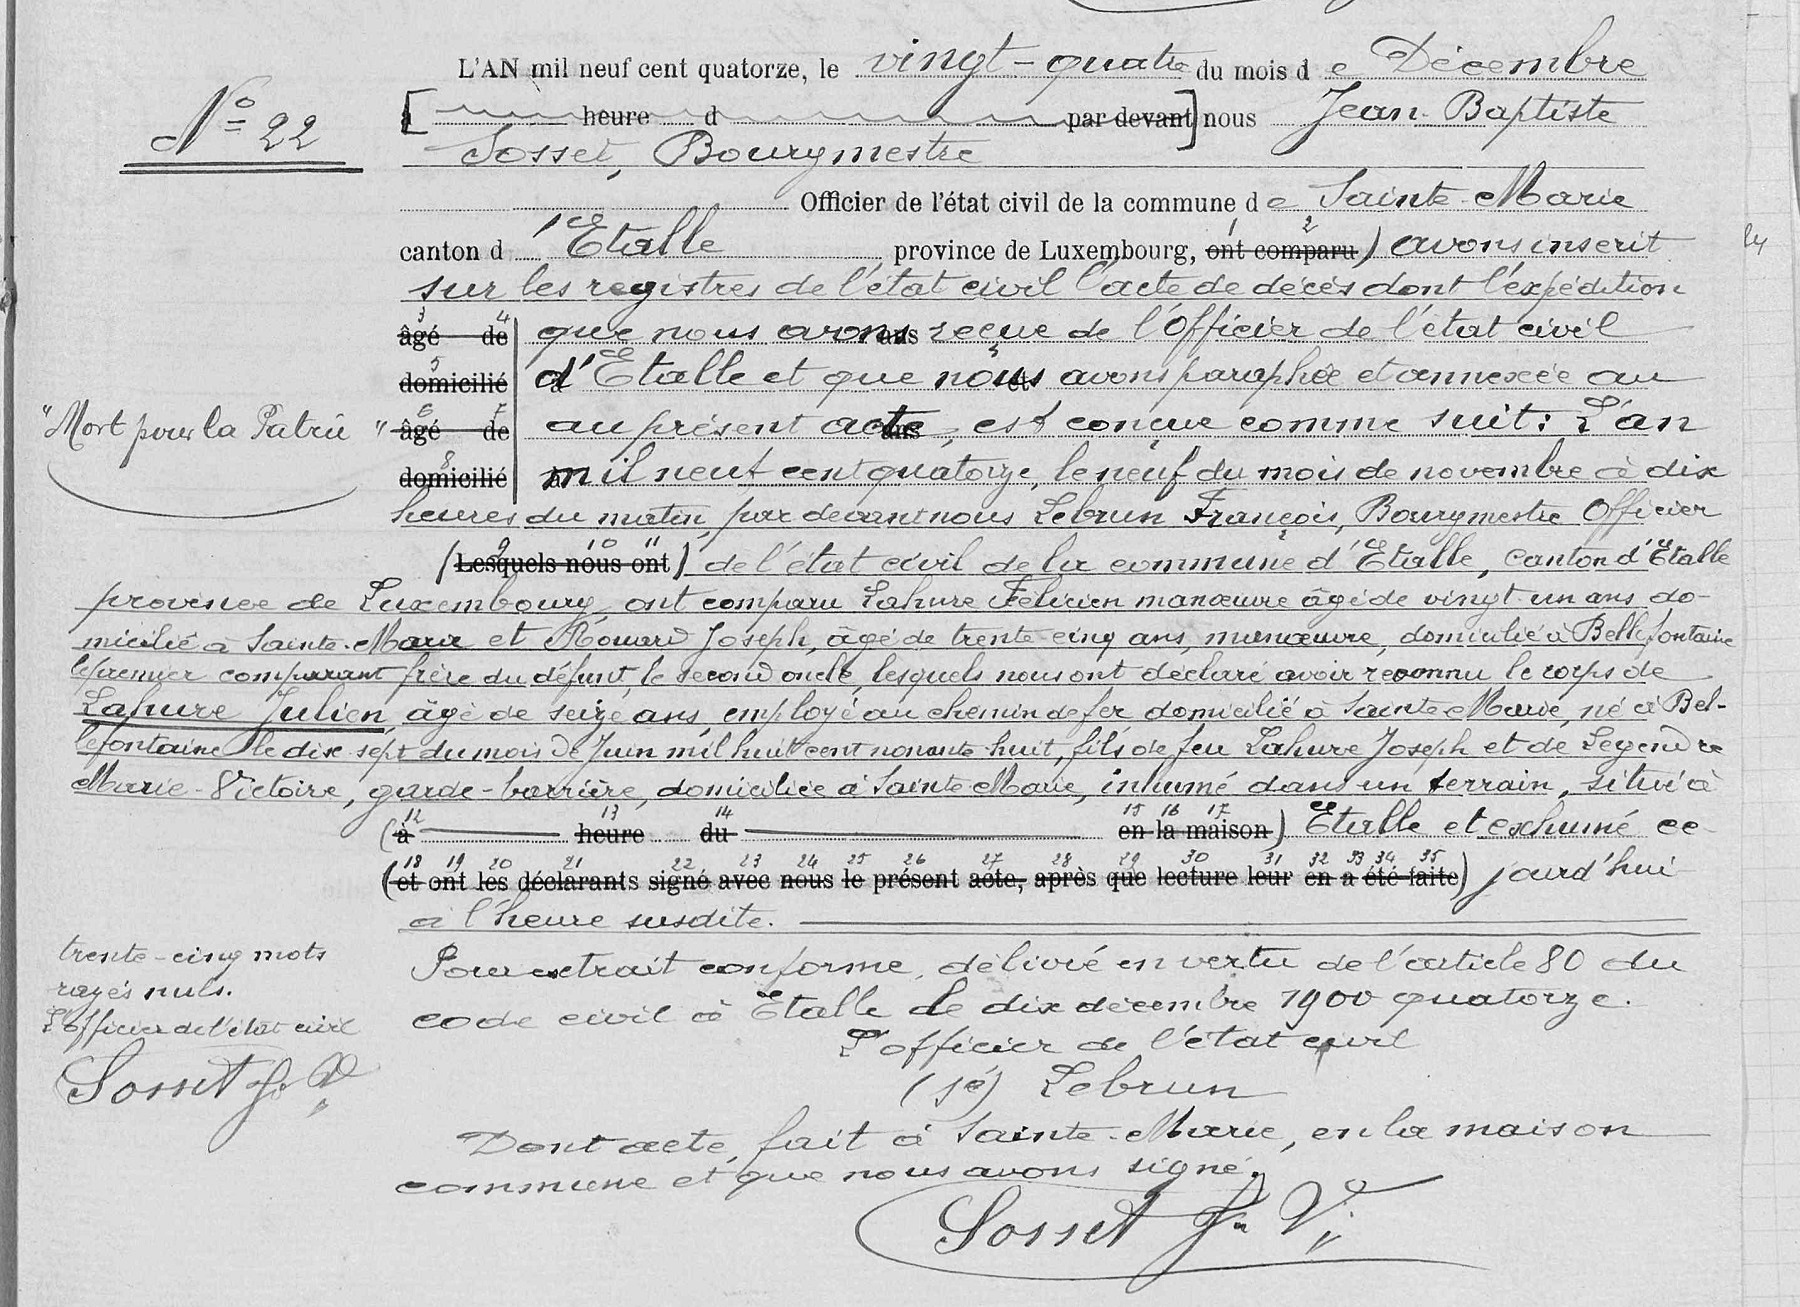 L'AN mil neuf cent quatorze, le vingt-quatre du mois de Décembre
N° 22
à [ heure d par devant] nous Jean-Baptiste
Sosset, Bourgmestre
Officier de l'état civil de la commune de Sainte-Marie
1 2
canton d'Etalle province de Luxembourg, ont comparu) avons inscrit
sur les registres de l'état civil l'acte de décès dont l'expédition
3 4
âgé de ans que nous avons reçue de l'Officier de l'état civil
5
domicilié à et d'Etalle et que nous avons paraphée et annexée au
6 7
"Mort pour la Patrie" âgé de ans au présent acte, est conçue comme suit: L'an
8
domicilié à mil neuf cent quatorze, le neuf du mois de novembre à dix
heures du matin, par devant nous Lebrun François, Bourgmestre Officier
9 10 11
(Lesquels nous ont) de l'état civil de la commune d'Etalle, canton d'Etalle
province de Luxembourg, ont comparu Lahure Félicien manœuvre âgé de vingt-un ans do-
micilié à Sainte-Marie et Rouard Joseph, âgé de trente-cinq ans, manœuvre, domicilié à Bellefontaine
le premier comparant frère du défunt, le second oncle, lesquels nous ont déclaré avoir reconnu le corps de
Lahure Julien, âgé de seize ans, employé au chemin de fer domicilié à Sainte-Marie, né à Bel-
lefontaine le dix-sept du mois de Juin mil huit cent nonante-huit, fils de feu Lahure Joseph et de Legendre
Marie-Victoire, garde-barrière, domiciliée à Sainte-Marie, inhumé dans un terrain, situé à
12 13 14 15 16 17
(à heure du en la maison) Etalle et exhumé ce
18 19 20 21 22 23 24 25 26 27 28 29 30 31 32 33 34 35
(et ont les déclarants signé avec nous le présent acte, après que lecture leur en a été faite) jourd'hui
à l'heure susdite.
trente-cinq mots
rayés nuls.
L'officier de l'état civil
Sosset
Pour extrait conforme, délivré en vertu de l'article 80 du
code civil à Etalle le dix décembre 1900 quatorze.
L'officier de l'état civil
(sé) Lebrun
Dont acte, fait à Sainte-Marie, en la maison
commune et que nous avons signé.
Sosset